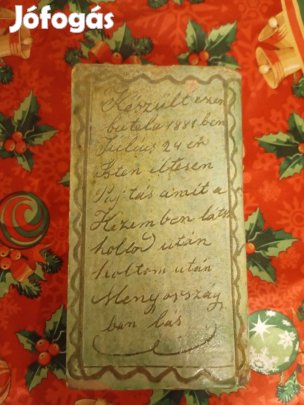 Jófogás
Készült ezen
butela 1881 ben
Július 24 én
Isten éltesen
Pajtás amit a
Kezemben láts
hollód után
holtom után
Menyország
ban lás